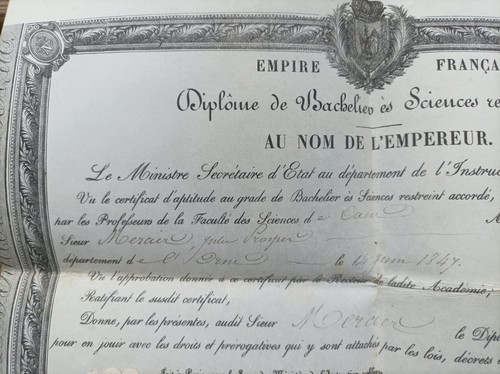 EMPIRE FRANÇA
Diplôme de Bachelier ès Sciences re
AU NOM DE L'EMPEREUR.
Le Ministre Secrétaire d'Etat au département de l'Instruc
Vu le certificat d'aptitude au grade de Bachelier ès Sciences restreint accordé,
par les Professeurs de la Faculté des Sciences de Caen
Sieur Mercier, Jules Prosper
département de l'Orne le 14 juin 1847,
Vu l'approbation donnée à ce certificat par le Recteur de ladite Académie,
Ratifiant le susdit certificat,
Donne, par les présentes, audit Sieur Mercier le Dip
pour en jouir avec les droits et prérogatives qui y sont attachés par les lois, décrets